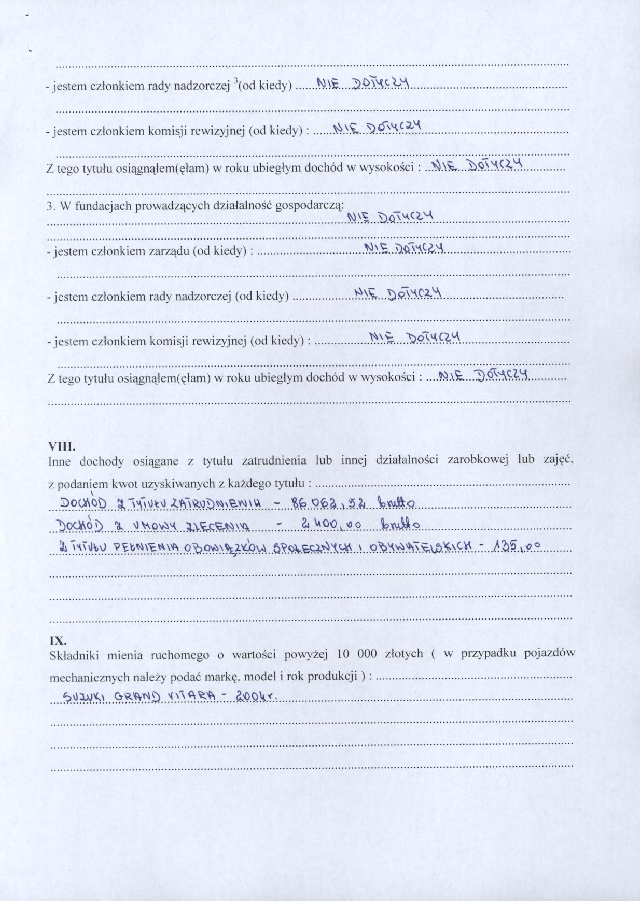 - jestem członkiem rady nadzorczej ³(od kiedy) ......NIE DOTYCZY......
- jestem członkiem komisji rewizyjnej (od kiedy) : ......NIE DOTYCZY......
Z tego tytułu osiągnąłem(ęłam) w roku ubiegłym dochód w wysokości : ..NIE DOTYCZY......
3. W fundacjach prowadzących działalność gospodarczą:
NIE DOTYCZY
- jestem członkiem zarządu (od kiedy) : ......NIE DOTYCZY......
- jestem członkiem rady nadzorczej (od kiedy) ......NIE DOTYCZY......
- jestem członkiem komisji rewizyjnej (od kiedy) : ......NIE DOTYCZY......
Z tego tytułu osiągnąłem(ęłam) w roku ubiegłym dochód w wysokości : ....NIE DOTYCZY......
VIII.
Inne dochody osiągane z tytułu zatrudnienia lub innej działalności zarobkowej lub zajęć,
z podaniem kwot uzyskiwanych z każdego tytułu : ......
DOCHÓD Z TYTUŁU ZATRUDNIENIA - 86 062,52 brutto
DOCHÓD Z UMOWY ZLECENIA - 2 400,00 brutto
Z TYTUŁU PEŁNIENIA OBOWIĄZKÓW SPOŁECZNYCH I OBYWATELSKICH - 135,00
IX.
Składniki mienia ruchomego o wartości powyżej 10 000 złotych ( w przypadku pojazdów
mechanicznych należy podać markę, model i rok produkcji ) : ......
SUZUKI GRAND VITARA - 2004r.